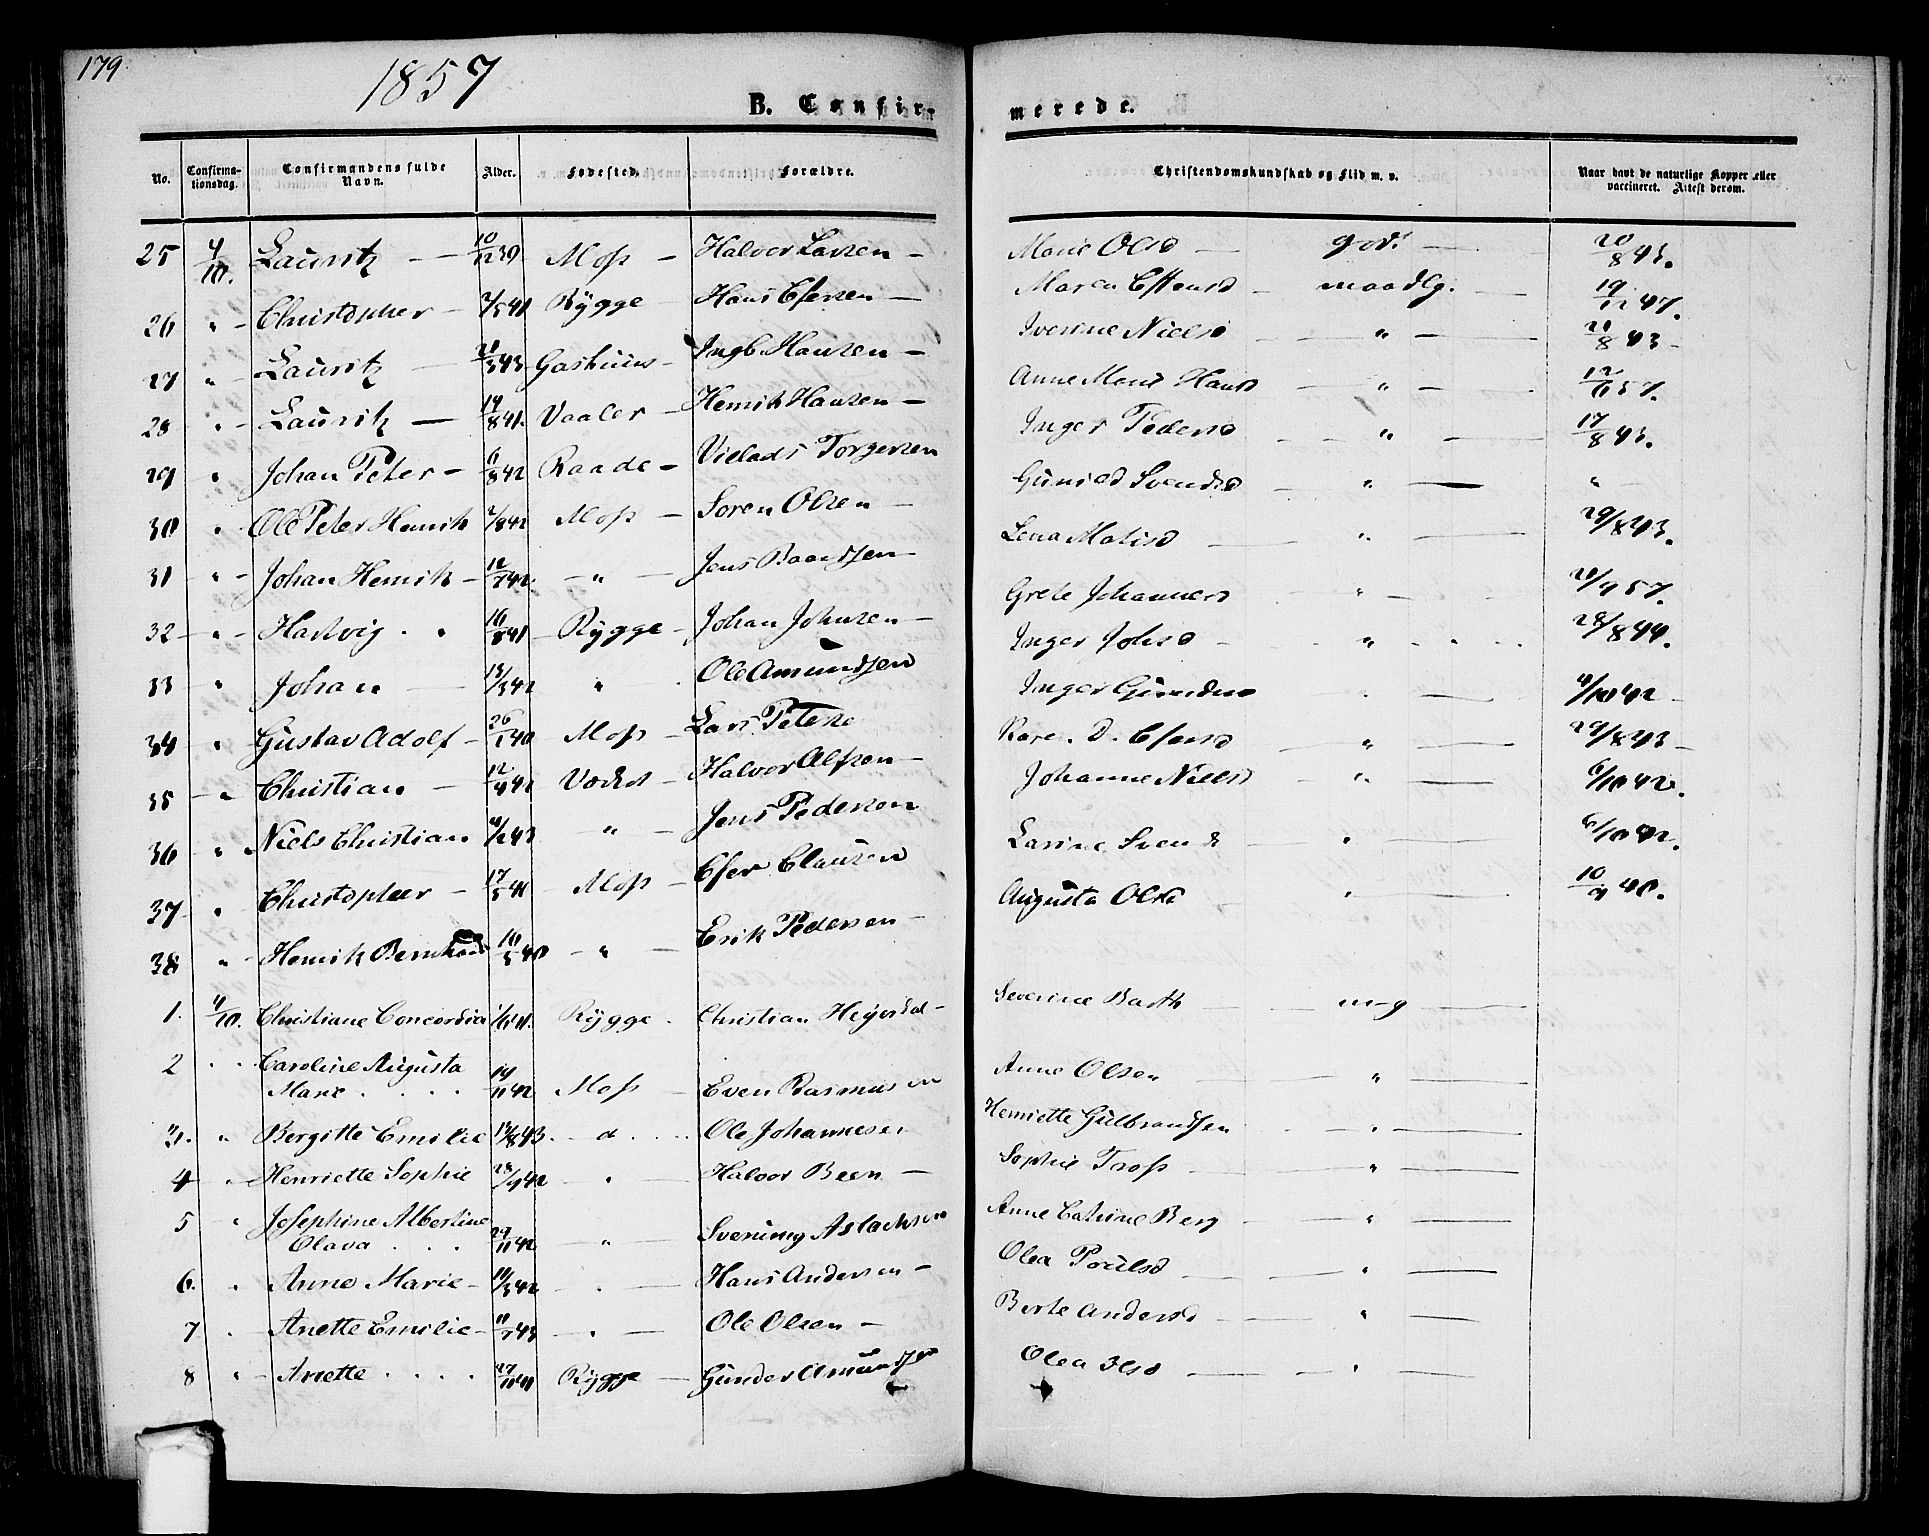 179
1857
B. Confir merede.
No. Confirmationsdag. Confirmandens fulde Navn. Alder. Fødested. Forældre. Christendomskundskab og Flid m. v. Naar havt de naturlige Kopper eller vaccineret. Attest derom.
25 4/10. Lauritz — 10/12 39 Moss — Halvor Larsen — Marie Olsd — god. — 20/8 43.
26 " Christopher — 2/5 41 Rygge — Hans Efersen — Maren — maadlg. — 19/12 47.
27 " Lauritz — 43 — Ingb. Hansen — Iverine Nielsd — " — 20/8 43 —
28 " Lauritz — 14/8 41. Vaaler — Henrik Hansen — Anne Marie Hansd — " — 12/6 57.
29 " Johan Peter — 11/8 42 Raade — Torgersen Inger Pedersd — " — 17/8 43.
30 " Ole Peter Henrik 2/8 42 Moss — Soren Olsen — Svendsd — " — "
31 " Johan Henrik — 12/7 42. — " — Jens — Lena — " 29/8 43.
32 — " — Hartvig . . 16/8 41 — Rygge — Johan Johnsen — Grete Johannesd — " — 20/9 57.
33 " Johan — 13/3 42 " . Ole Amundsen Inger Johsd — " 28/8 44.
34 " Gustav Adolf — 26/1 40 Moss — Lars Inger . — 4/10 42 —
35 — " Christian — 12/4 42 — Halvor Alfsen — Karen D. — " — 29/8 43 —
36 " Niels Christian 43 " — Jens Pedersen Johanne Nielsd — " 6/10 42.
37 " Christopher — 17/5 41 — Moss — Efer Clausen Larine Svend — " — 6/10 42.
38 " Henrik Bernhard 10/5 40 — " — Erik Pedersen — Augusta Olsd — " — 10/9 40.
1. 4/10. Christiane Concordia 41. Rygge . Christian — Severine Barth — m-g —
2 . . Caroline Augusta
Marie . . . . 14/11 42 Moss — Even Rasmussen Anne Olsen — " —
3. " Bergitte Emilie 13/8 43. — d . . . . Ole Johannesen Henriette Gulbrandsen — " —
4 " Henriette Sophie 28/9 42 — " Halvor Been — Sophie — " —
5 " Josephine Albertine
Olava . . . 29/11 42 — " — Aslachsen Anne Catrine Berg — " —
6. " Anne Marie — 11/3 42 . — Hans Andersen — Olea Poulsd — " —
7 . Anette Emilie — 11/7 43 — " — Ole Olsen — Berte Andersd — " —
8 " — Anette . . . . 27/11 41 Rygge — Gunder Amundsen Olea Olsd — " —